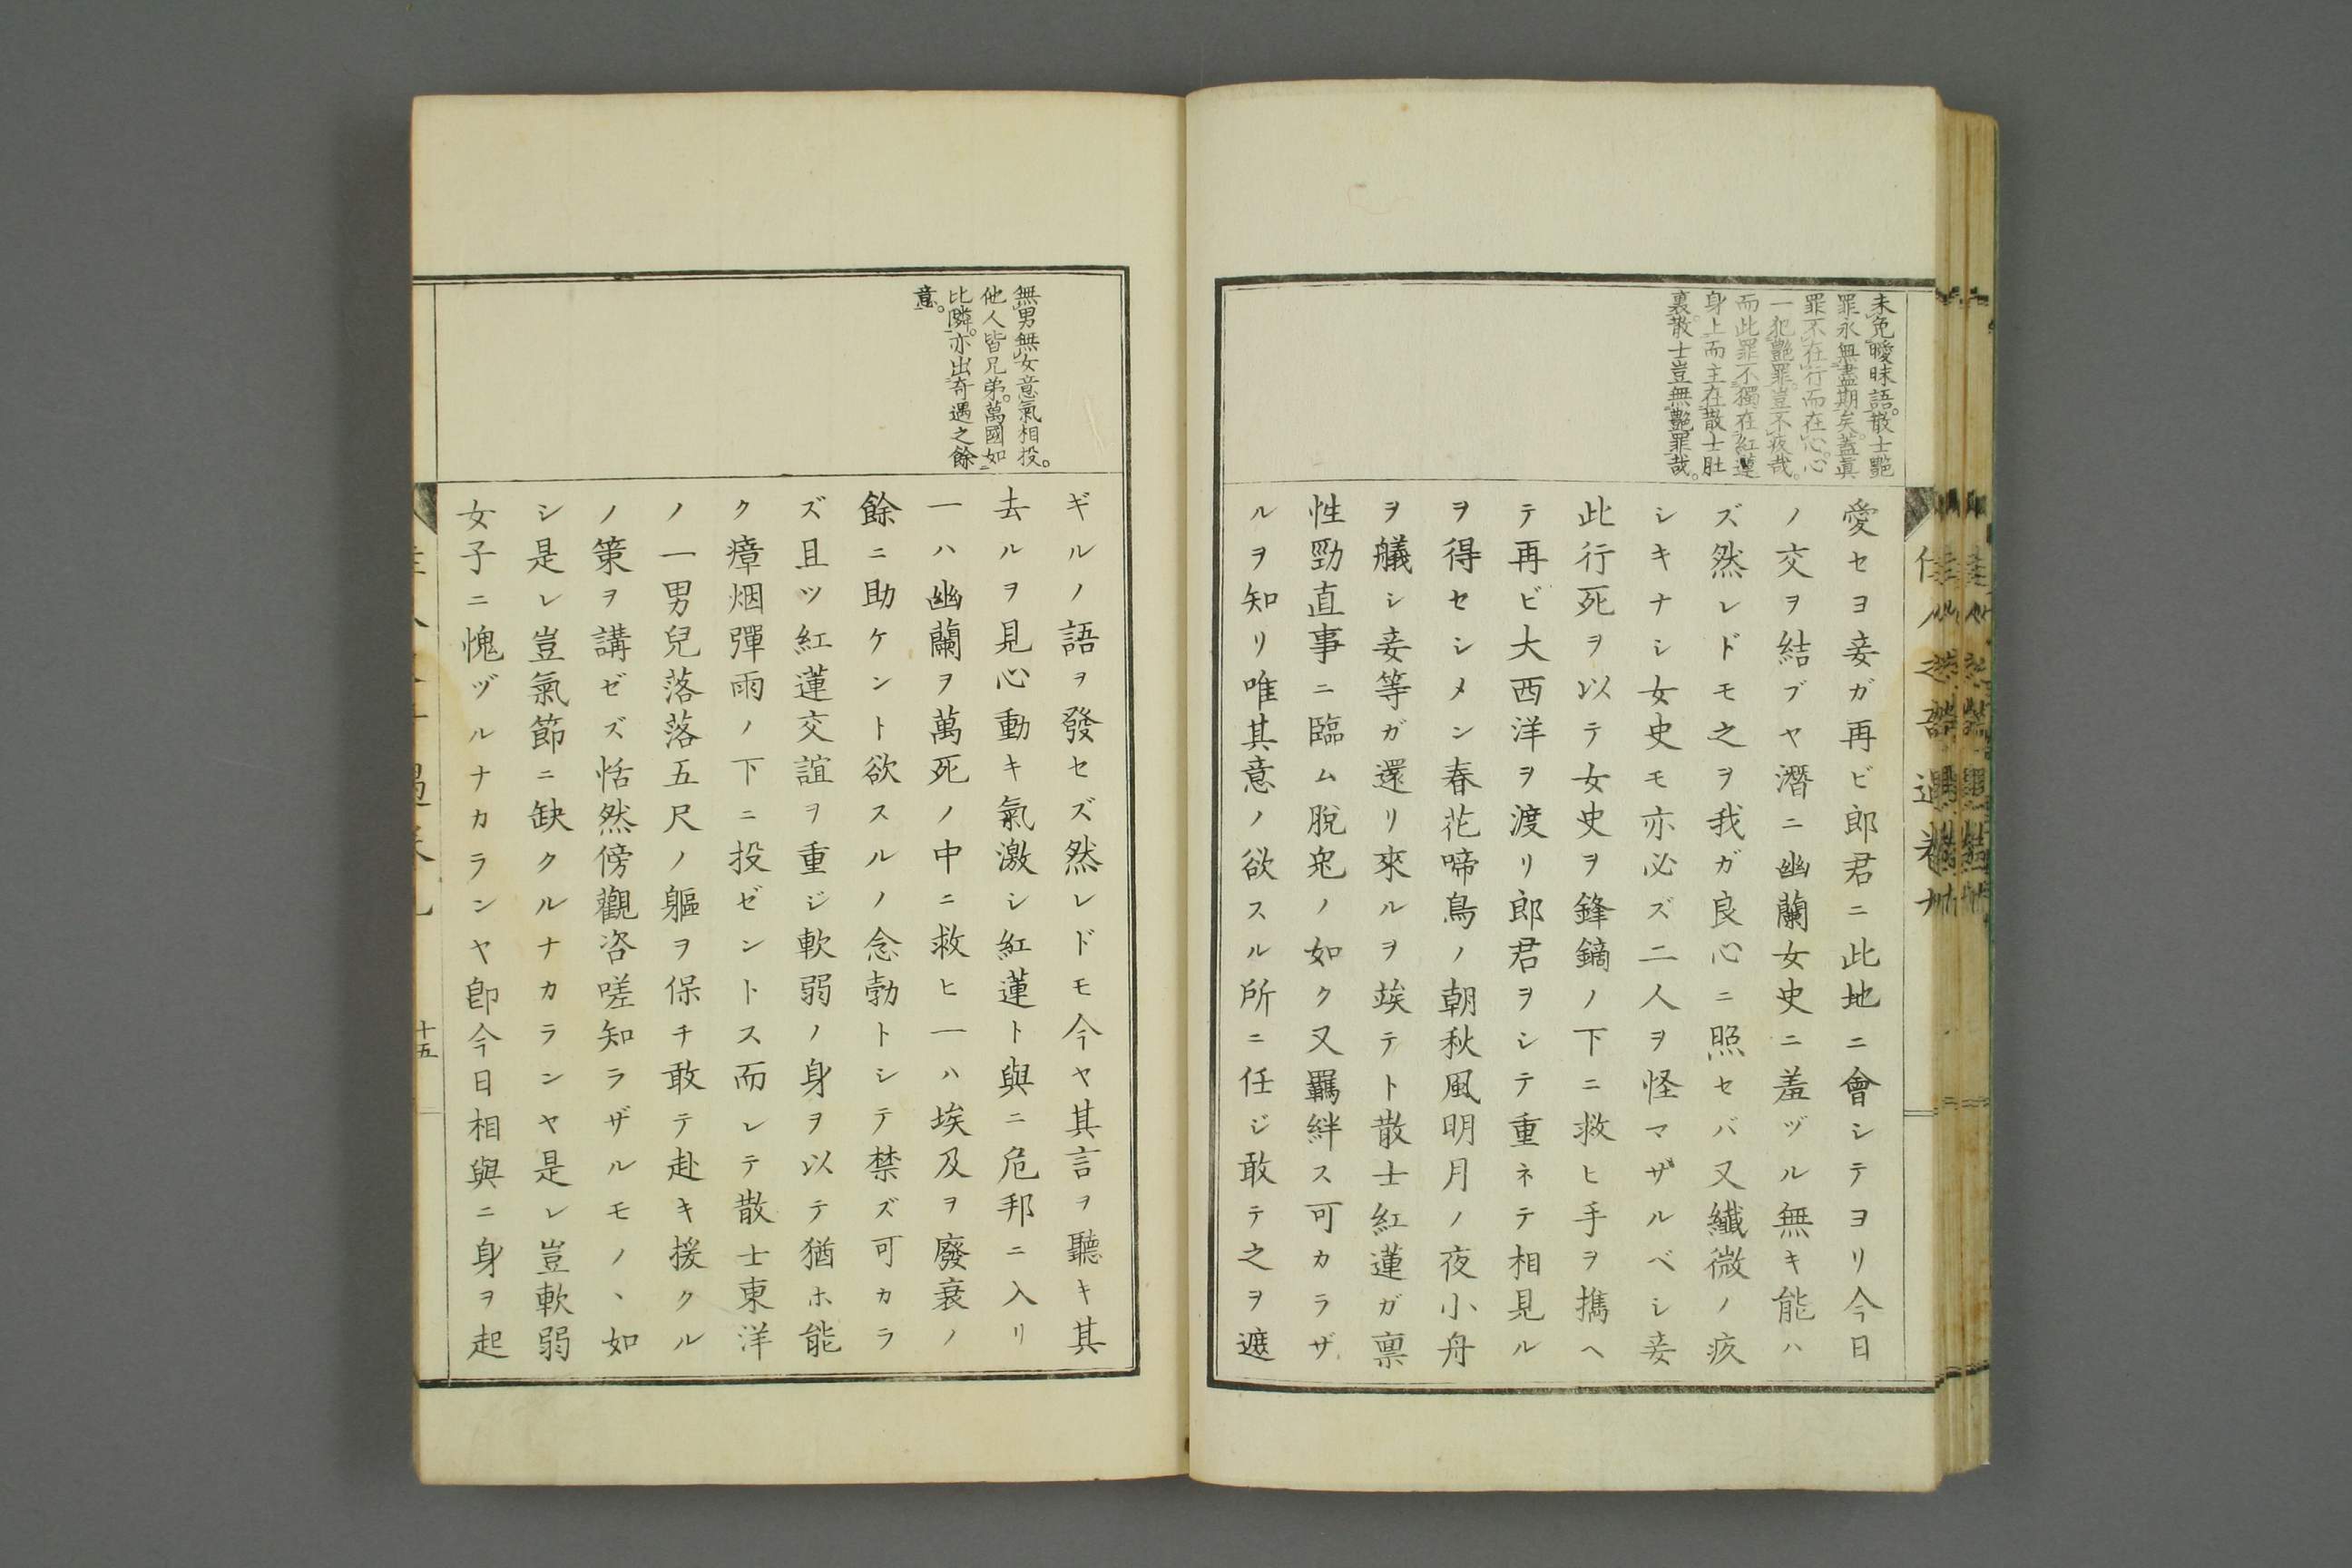 未免曖昧語。散士艶
罪永無盡期矣。蓋眞
罪不在行而在心。心
一犯艶罪。豈不疚哉。
而此罪不獨在紅蓮
身上而主在散士肚
裏。散士豈無艶罪哉。
愛セヨ妾ガ再ビ郎君ニ此地ニ會シテヨリ今日
ノ交ヲ結ブヤ潛ニ幽蘭女史ニ羞ヅル無キ能ハ
ズ然レドモ之ヲ我ガ良心ニ照セバ又纖微ノ疚
シキナシ女史モ亦必ズ二人ヲ怪マザルベシ妾
此行死ヲ以テ女史ヲ鋒鏑ノ下ニ救ヒ手ヲ携ヘ
テ再ビ大西洋ヲ渡リ郎君ヲシテ重ネテ相見ル
ヲ得セシメン春花啼鳥ノ朝秋風明月ノ夜小舟
ヲ艤シ妾等ガ還リ來ルヲ竢テト散士紅蓮ガ稟
性勁直事ニ臨ム脫兔ノ如ク又羈絆ス可カラザ
ルヲ知リ唯其意ノ欲スル所ニ任ジ敢テ之ヲ遮
無男無女意氣相投。
他人皆兄弟。萬國如
比隣。亦出奇遇之餘
意。
ギルノ語ヲ發セズ然レドモ今ヤ其言ヲ聽キ其
去ルヲ見心動キ氣激シ紅蓮ト與ニ危邦ニ入リ
一ハ幽蘭ヲ萬死ノ中ニ救ヒ一ハ埃及ヲ廢衰ノ
餘ニ助ケント欲スルノ念勃トシテ禁ズ可カラ
ズ且ツ紅蓮交誼ヲ重ジ軟弱ノ身ヲ以テ猶ホ能
ク瘴烟彈雨ノ下ニ投ゼントス而レテ散士東洋
ノ一男兒落落五尺ノ軀ヲ保チ敢テ赴キ援クル
ノ策ヲ講ゼズ恬然傍觀咨嗟知ラザルモノヽ如
シ是レ豈氣節ニ缺クルナカランヤ是レ豈軟弱
女子ニ愧ヅルナカランヤ卽今日相與ニ身ヲ起
十五